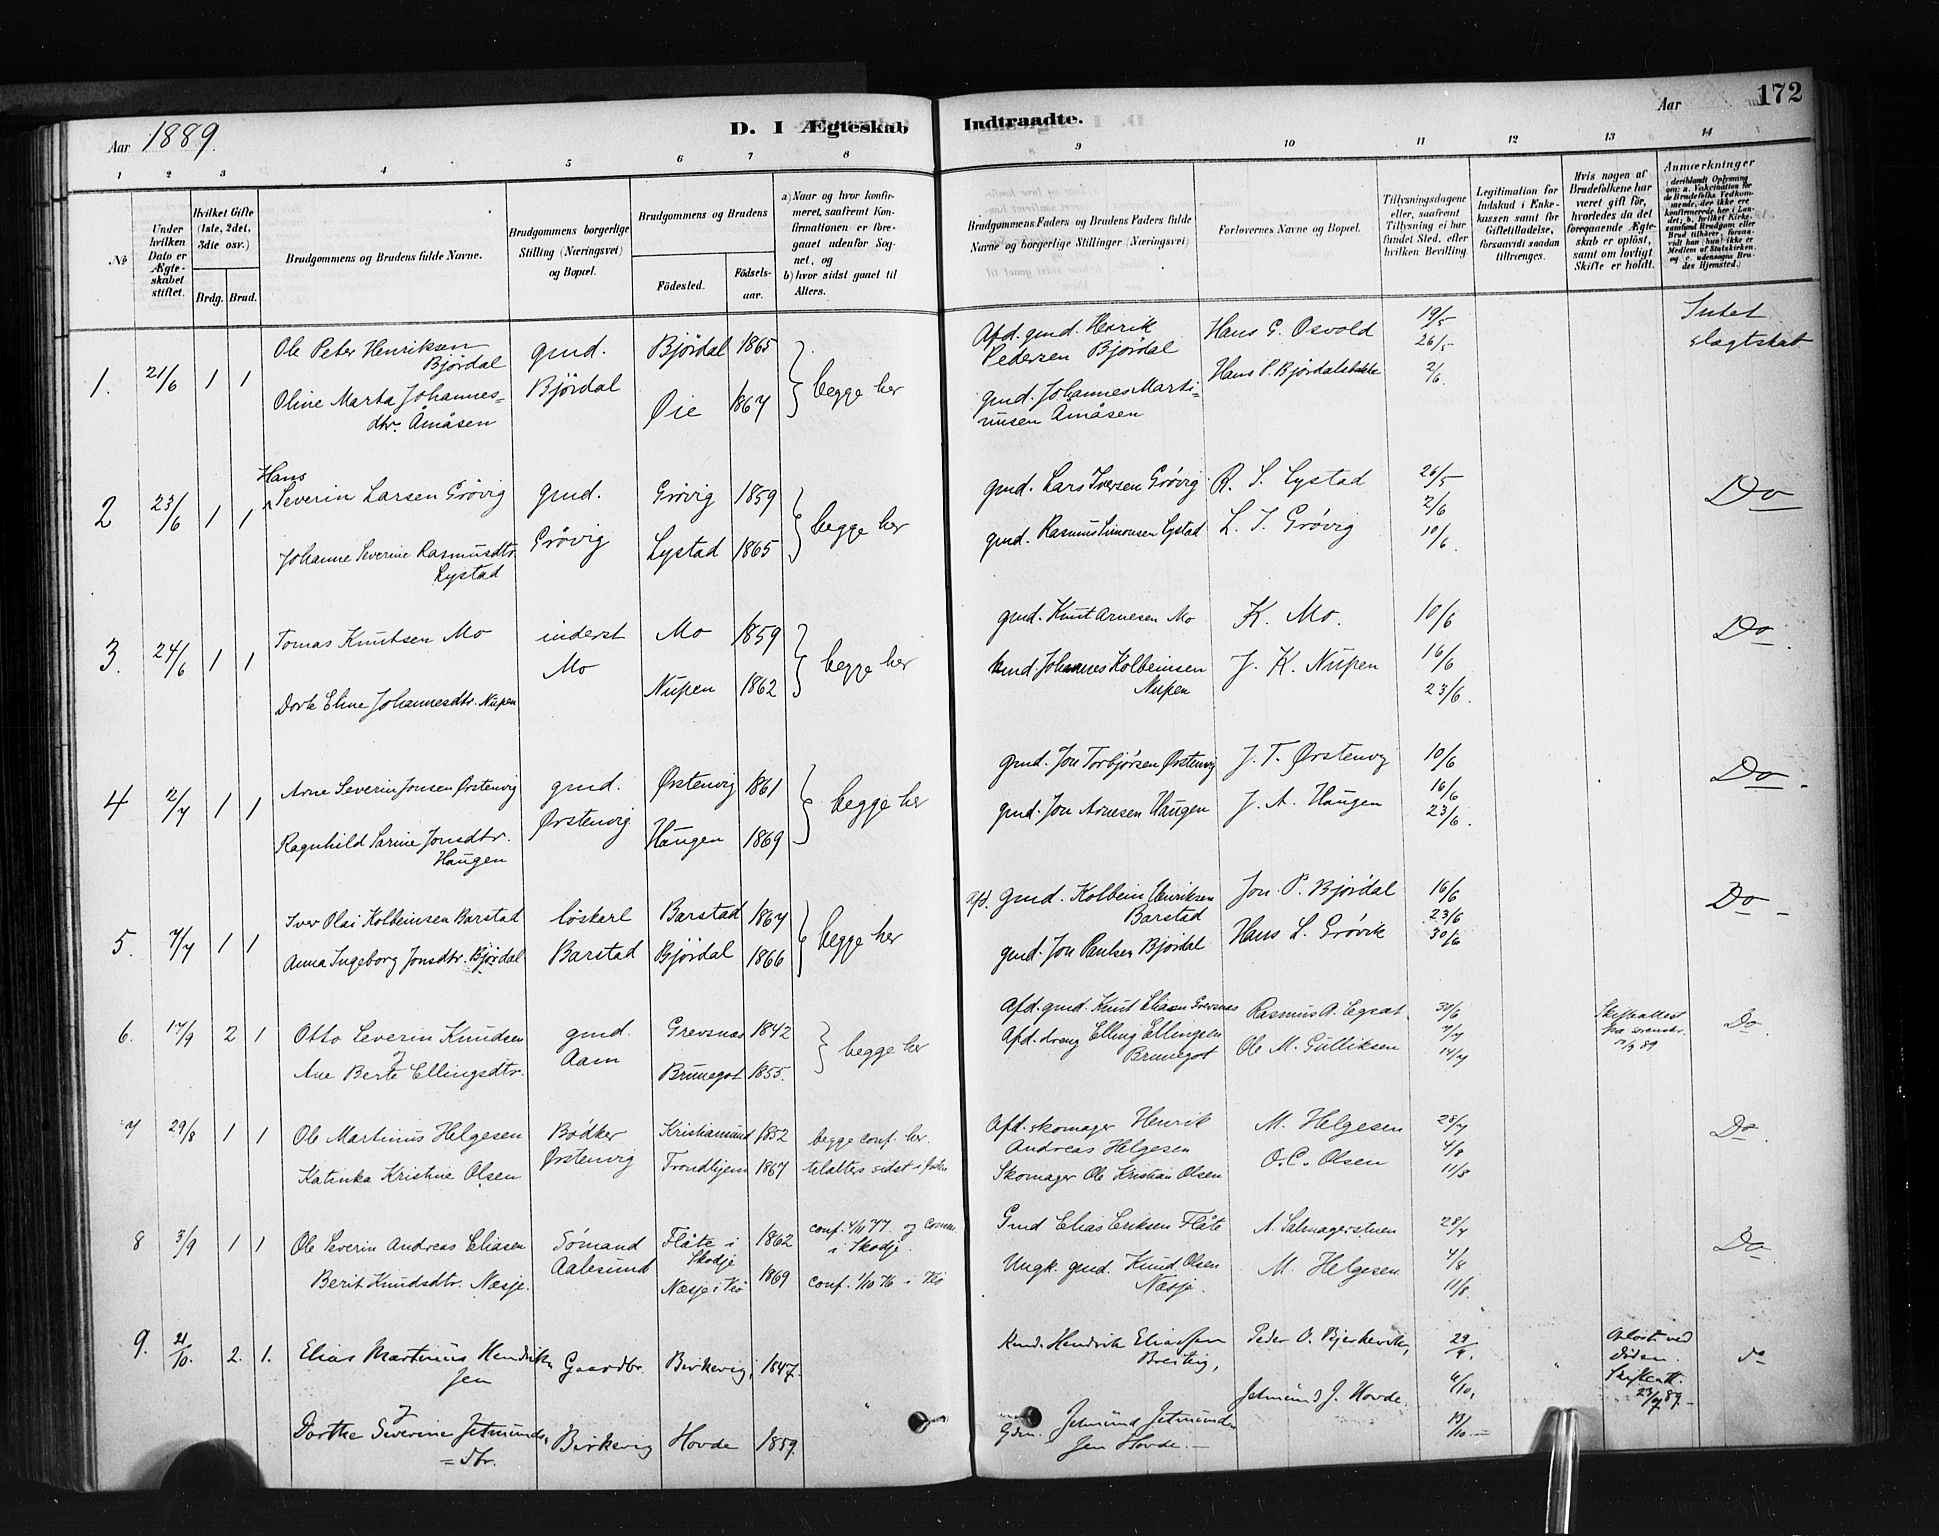 Aar 1889.
D. I Ægteskab Indtraadte.
Aar
172
1 2 3 4 5 6 7 8 9 10 11 12 13 14
No
Under hvilken Dato er Ægteskabet stiftet.
Hvilket Gifte (1ste, 2det, 3die osv.)
Brdg. Brud.
Brudgommens og Brudens fulde Navne.
Brudgommens borgerlige Stilling (Næringsvei) og Bopæl.
Brudgommens og Brudens
Fødested. Fødselsaar.
a) Naar og hvor konfirmeret, saafremt Konfirmationen er foregaaet udenfor Sognet, og
b) hvor sidst gaaet til Alters.
Brudgommens Faders og Brudens Faders fulde Navne og borgerlige Stillinger (Næringsvei)
Forlovernes Navne og Bopæl.
Tillysningsdagene eller, saafremt Tillysning ei har fundet Sted, efter hvilken Bevilling.
Legitimation for Indskud i Enkekassen samt for Giftetilladelse, forsaavidt saadan tiltrænges.
Hvis nogen af Brudefolkene har været gift før, hvorledes da det foregaaende Ægteskab er opløst, samt om lovligt Skifte er holdt.
Anmærkninger
1. 21/6 1 1 Ole Peter Henriksen Bjørdal gmd. Bjørdal 1865 begge her Afd. gmd. Henrik Pedersen Bjørdal Hans G. Osvold 19/5 26/5 2/6. Intet slagtskab
Oline Marta Johannes=dtr. Åmåsen Bjørdal Øie 1867 gmd. Johannes Marti=nusen Åmåsen Hans P. Bjørdalsbakke
2 23/6 1 1 Hans Severin Larsen Grøvig gmd. Grøvig 1859 begge her gmd. Lars Iversen Grøvig R. S. Lystad 26/5 2/6 10/6. Do
Johanne Severine Rasmusdtr. Lystad Grøvig Lystad 1865 gmd. Rasmus Simonsen Lystad L. I. Grøvig
3. 24/6 1 1 Tomas Knutsen Mo inderst Mo 1859 begge her gmd. Knut Arnesen Mo K. Mo. 10/6 16/6 23/6. Do.
Dorte Eline Johannesdtr. Nupen Mo Nupen 1862 Johannes Kolbeinsen Nupen J. K. Nupen
4 2/7 1 1 Arne Severin Jonsen Ørstenvig gmd. Ørstenvig 1861 begge her gmd. Jon Torbjørsen Ørstenvig J. T. Ørstenvig 10/6 16/6 23/6. Do.
Ragnhild Sarine Jonsdtr. Haugen Ørstenvig Haugen 1869 gmd. Jon Arnesen Haugen J. A. Haugen
5. 7/7 1 1 Iver Olai Kolbeinsen Barstad løskerl Barstad 1867 begge her Afd. gmd. Kolbein Henriksen Barstad Jon. P. Bjørdal 16/6 23/6 30/6 Do
Anna Ingeborg Jonsdtr. Bjørdal Barstad Bjørdal 1866 gmd. Jon Paulsen Bjørdal Hans L. Grøvik
6. 17/9 2 1 Otto Severin Knudsen gmd. Grevsnæs 1842 begge her Afd. gmd. Knut Eliasen Grevsnæs Rasmus A. Egset 30/6 7/7 14/7 Skifteattest Do.
Ane Berte Ellingsdtr. Aam Brunegot 1855. Afd. dreng Elling Ellingsen Brunegot Ole M. Gulliksen
7 29/8 1 1 Ole Martinus Helgesen Bødker Kristiansund 1852 begge conf. her. Afd. skomager Henrik Andreas Helgesen M. Helgesen 28/7 4/8 11/8 Do.
Katinka Kristine Olsen Ørstenvig Trondhjem 1867 tilalters sidst i Skomager Ole Kristian Olsen O. C. Olsen
8 3/9 1 1 Ole Severin Andreas Eliasen Sømand Flåte i Skodje 1862 conf. i Skodje. Gmd Elias Eriksen Flåte 28/7 4/8 11/8. Do
Berit Knudsdtr. Næsje. Aalesund Næsje i 1869 conf. 1/10 76 i gmd. Knud Olsen Næsje. M. Helgesen
9. 21/10. 2. 1. Elias Martinus Hendriksen Gaardbr. Birkevig, 1847. Hendrik Eliassen Peder O. Bjerkevik, 29/9. 6/10, 13/10. Opløst ved Døden. Skifteatt. 23/7 89. do
Dorthe Severine Jetmunds=dtr. Birkevig Hovde 1859. Gdm. Jetmund Jetmundsen Hovde. Jetmund J. Hovde.